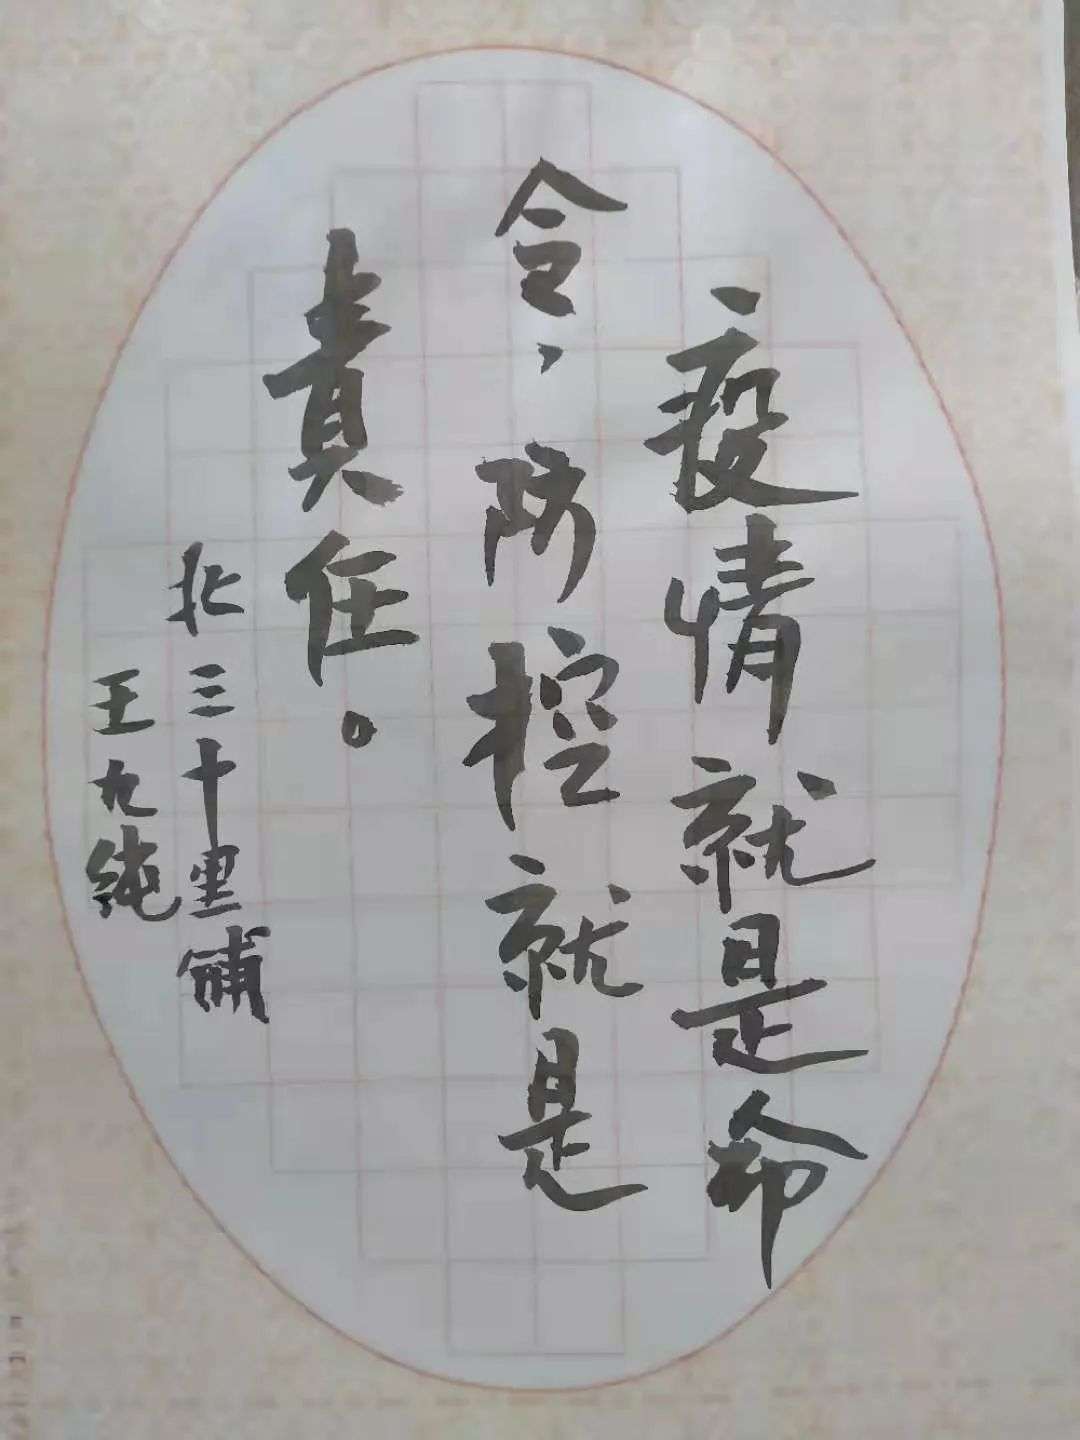 疫情就是命
令，防控就是
責任。
北三十里舖
王九纯